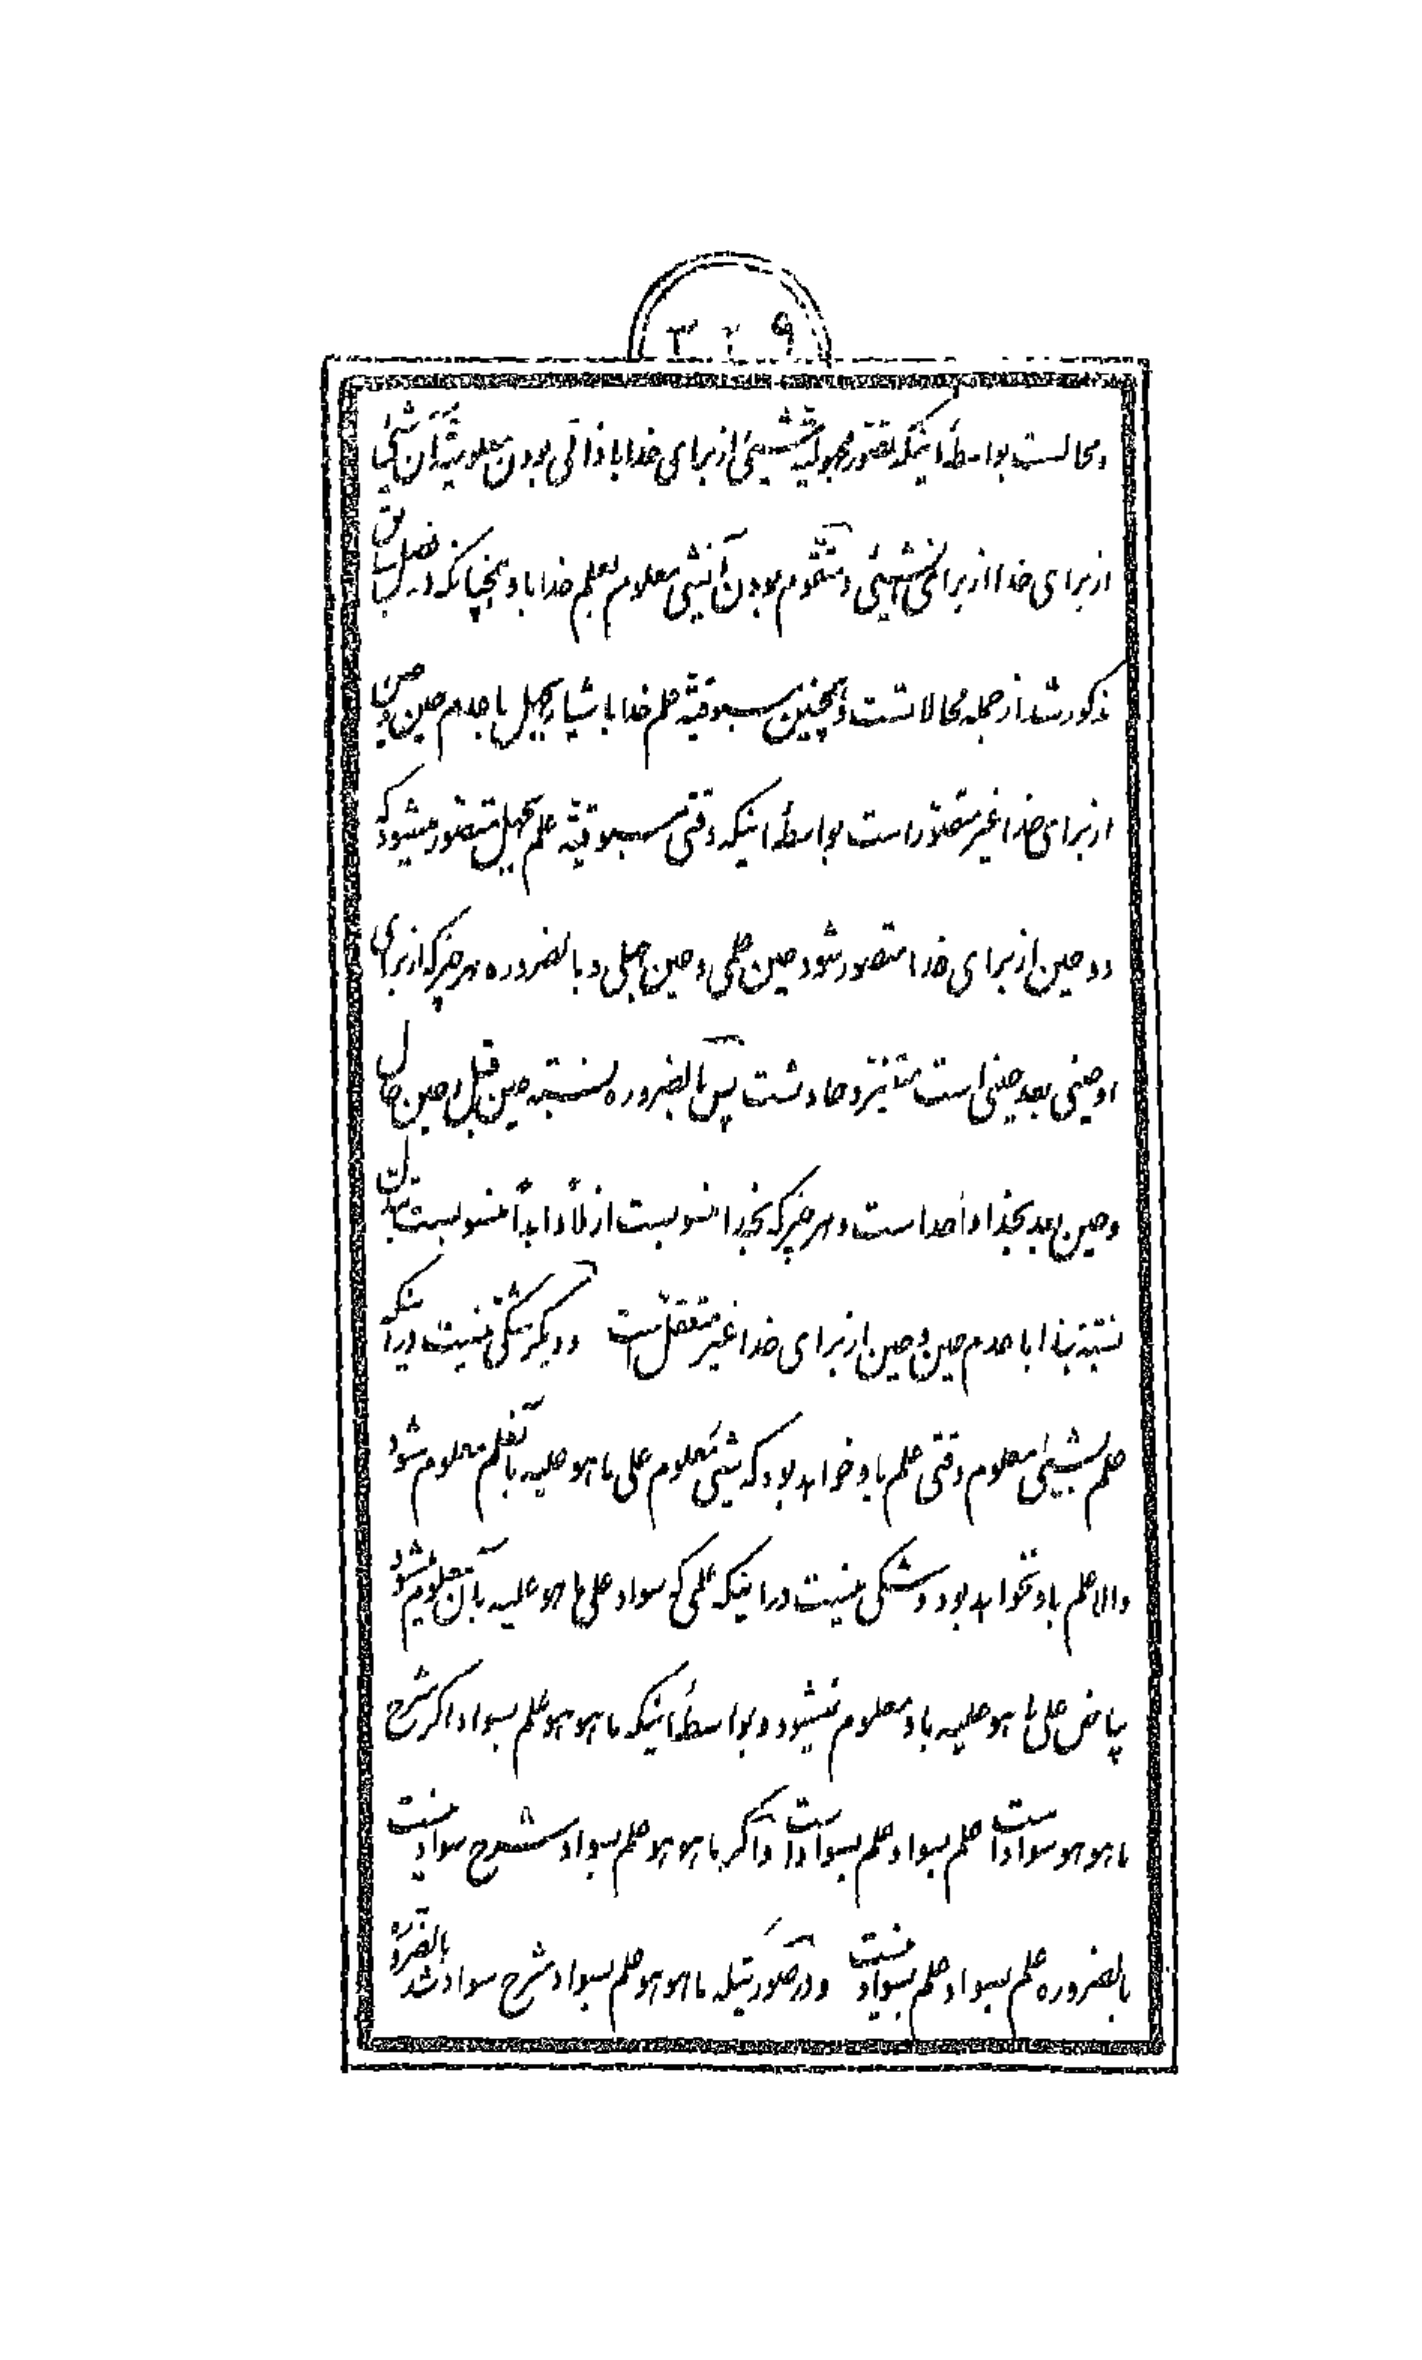 ۳۲۹
و محالست بواسطهٔ اینکه تصور مجهولیة شیئی از برای خدا با ذاتی بودن معلومیّة آن شیئی
از برای خدا از برای شیئی و متقوم بودن آنشی معلوم بعلم خدا باو همچنانکه در فصل سابق
مذکور شد از جمله محالاتست و همچنین مسبوقیّة علم خدا باشیا بجهل با عدم حین و حین
از برای خدا غیر متصوّر است بواسطهٔ اینکه وقتی مسبوقیّة علم بجهل متصوّر میشود که
دو حین از برای خدا متصور شود حین علمی و حین جهلی و بالضروره هر چیز که از برای
او حینی بعد حینی است متغیّر و حادثست پس بالضروره نسبة حین قبل و حین حال
و حین بعد بخدا واحد است و هر چیز که بخدا منسوبست ازلاً و ابداً منسوبست
نسبة بخدا با عدم حین و حین از برای خدا غیر متعقل است و دیگر شکی نیست در اینکه
علم بشیئی معلوم وقتی علم باو خواهد بود که شیئی معلوم علی ما هو علیه بآنعلم معلوم شود
والا علم باو نخواهد بود و شکی نیست در اینکه علمی که سواد علی ما هو علیه بآن معلوم میشود
بیاض علی ما هو علیه باو معلوم نمیشود و بواسطهٔ اینکه ما هو هو علم بسواد اگر شرح
ما هو هو سواد است علم بسواد علم بسواد است و اگر ما هو هو علم بسواد شرح سواد نیست
بالضروره علم بسواد علم بسواد نیست و در صورتیکه ما هو هو علم بسواد شرح سواد شد بالضروره